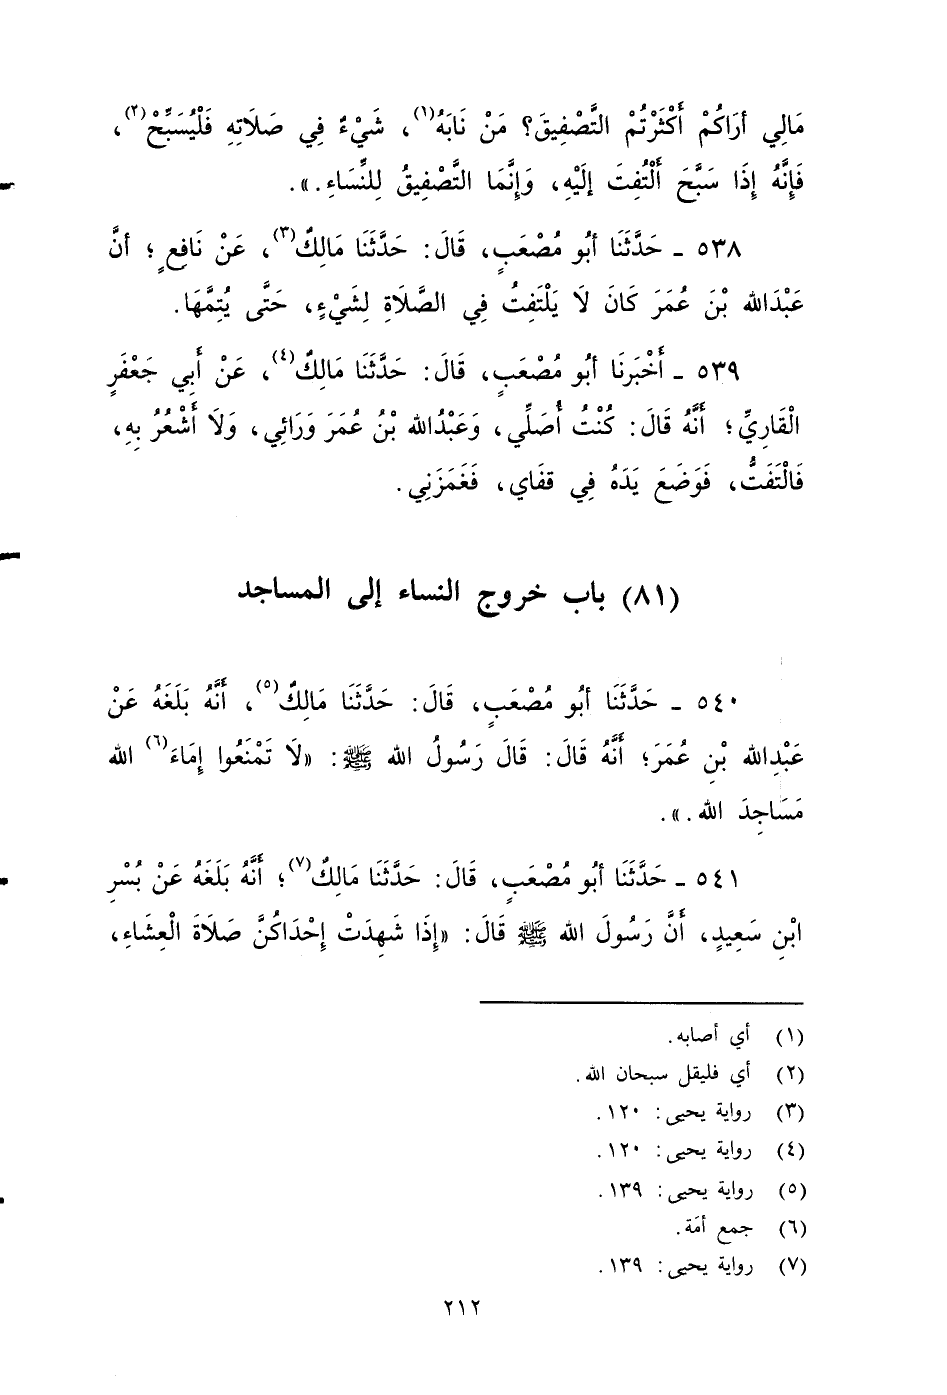 مَالِي أرَاكُمْ أَكْثَرْتُمْ التَّصْفِيقَ؟ مَنْ نَابَهُ(١)، شَيْءٌ فِي صَلَاتِهِ فَلْيُسَبِّحْ(٢)،
فَإِنَّهُ إِذَا سَبَّحَ أَلْتُفِتَ إلَيْهِ، وَإِنَّمَا التَّصْفِيقُ لِلنِّسَاءِ.».
٥٣٨ ـ حَدَّثَنَا أبُو مُصْعَبٍ، قَالَ: حَدَّثَنَا مَالِكٌ(٣)، عَنْ نَافِعٍ؛ أنَّ
عَبْدَالله بْنَ عُمَرَ كَانَ لَا يَلْتَفِتُ فِي الصَّلَاةِ لِشَيْءٍ، حَتَّى يُتِمَّهَا.
٥٣٩ ـ أَخْبَرَنَا أبُو مُصْعَبٍ، قَالَ: حَدَّثَنَا مَالِكٌ(٤)، عَنْ أَبِي جَعْفَرٍ
الْقَارِيِّ؛ أَنَّهُ قَالَ: كُنْتُ أُصَلِّي، وَعَبْدُالله بْنُ عُمَرَ وَرَائِي، وَلَا أَشْعُرُ بِهِ،
فَالْتَفَتُّ، فَوَضَعَ يَدَهُ فِي قفَاي، فَغَمَزَنِي.
(٨١) باب خروج النساء إلى المساجد
٥٤٠ ـ حَدَّثَنَا أبُو مُصْعَبٍ، قَالَ: حَدَّثَنَا مَالِكٌ(٥)، أَنَّهُ بَلَغَهُ عَنْ
عَبْدِالله بْنِ عُمَرَ؛ أَنَّهُ قَالَ: قَالَ رَسُولُ الله ﷺ: «لَا تَمْنَعُوا إِمَاءَ(٦) الله
مَسَاجِدَ الله.».
٥٤١ ـ حَدَّثَنَا أبُو مُصْعَبٍ، قَالَ: حَدَّثَنَا مَالِكٌ(٧)؛ أَنَّهُ بَلَغَهُ عَنْ بُسْرِ
ابْنِ سَعِيدٍ، أَنَّ رَسُولَ الله ﷺ قَالَ: «إِذَا شَهِدَتْ إِحْدَاكُنَّ صَلَاةَ الْعِشَاءِ،
(١) أي أصابه.
(٢) أي فليقل سبحان الله.
(٣) رواية يحيى: ١٢٠.
(٤) رواية يحيى: ١٢٠.
(٥) رواية يحيى: ١٣٩.
(٦) جمع أمَة.
(٧) رواية يحيى: ١٣٩.
٢١٢